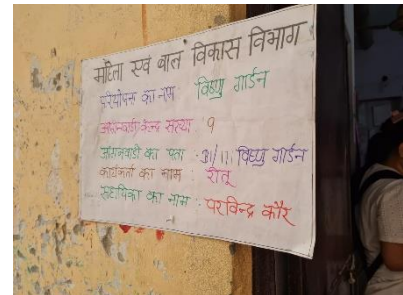 महिला एवं बाल विकास विभाग
परियोजना का नाम विष्णु गार्डन
आंगनवाड़ी केन्द्र संख्या 9
आंगनवाडी का पता : विष्णु गार्डन
कार्यकर्ता का नाम : रीतू
सहायिका का नाम : परविन्द्र कौर